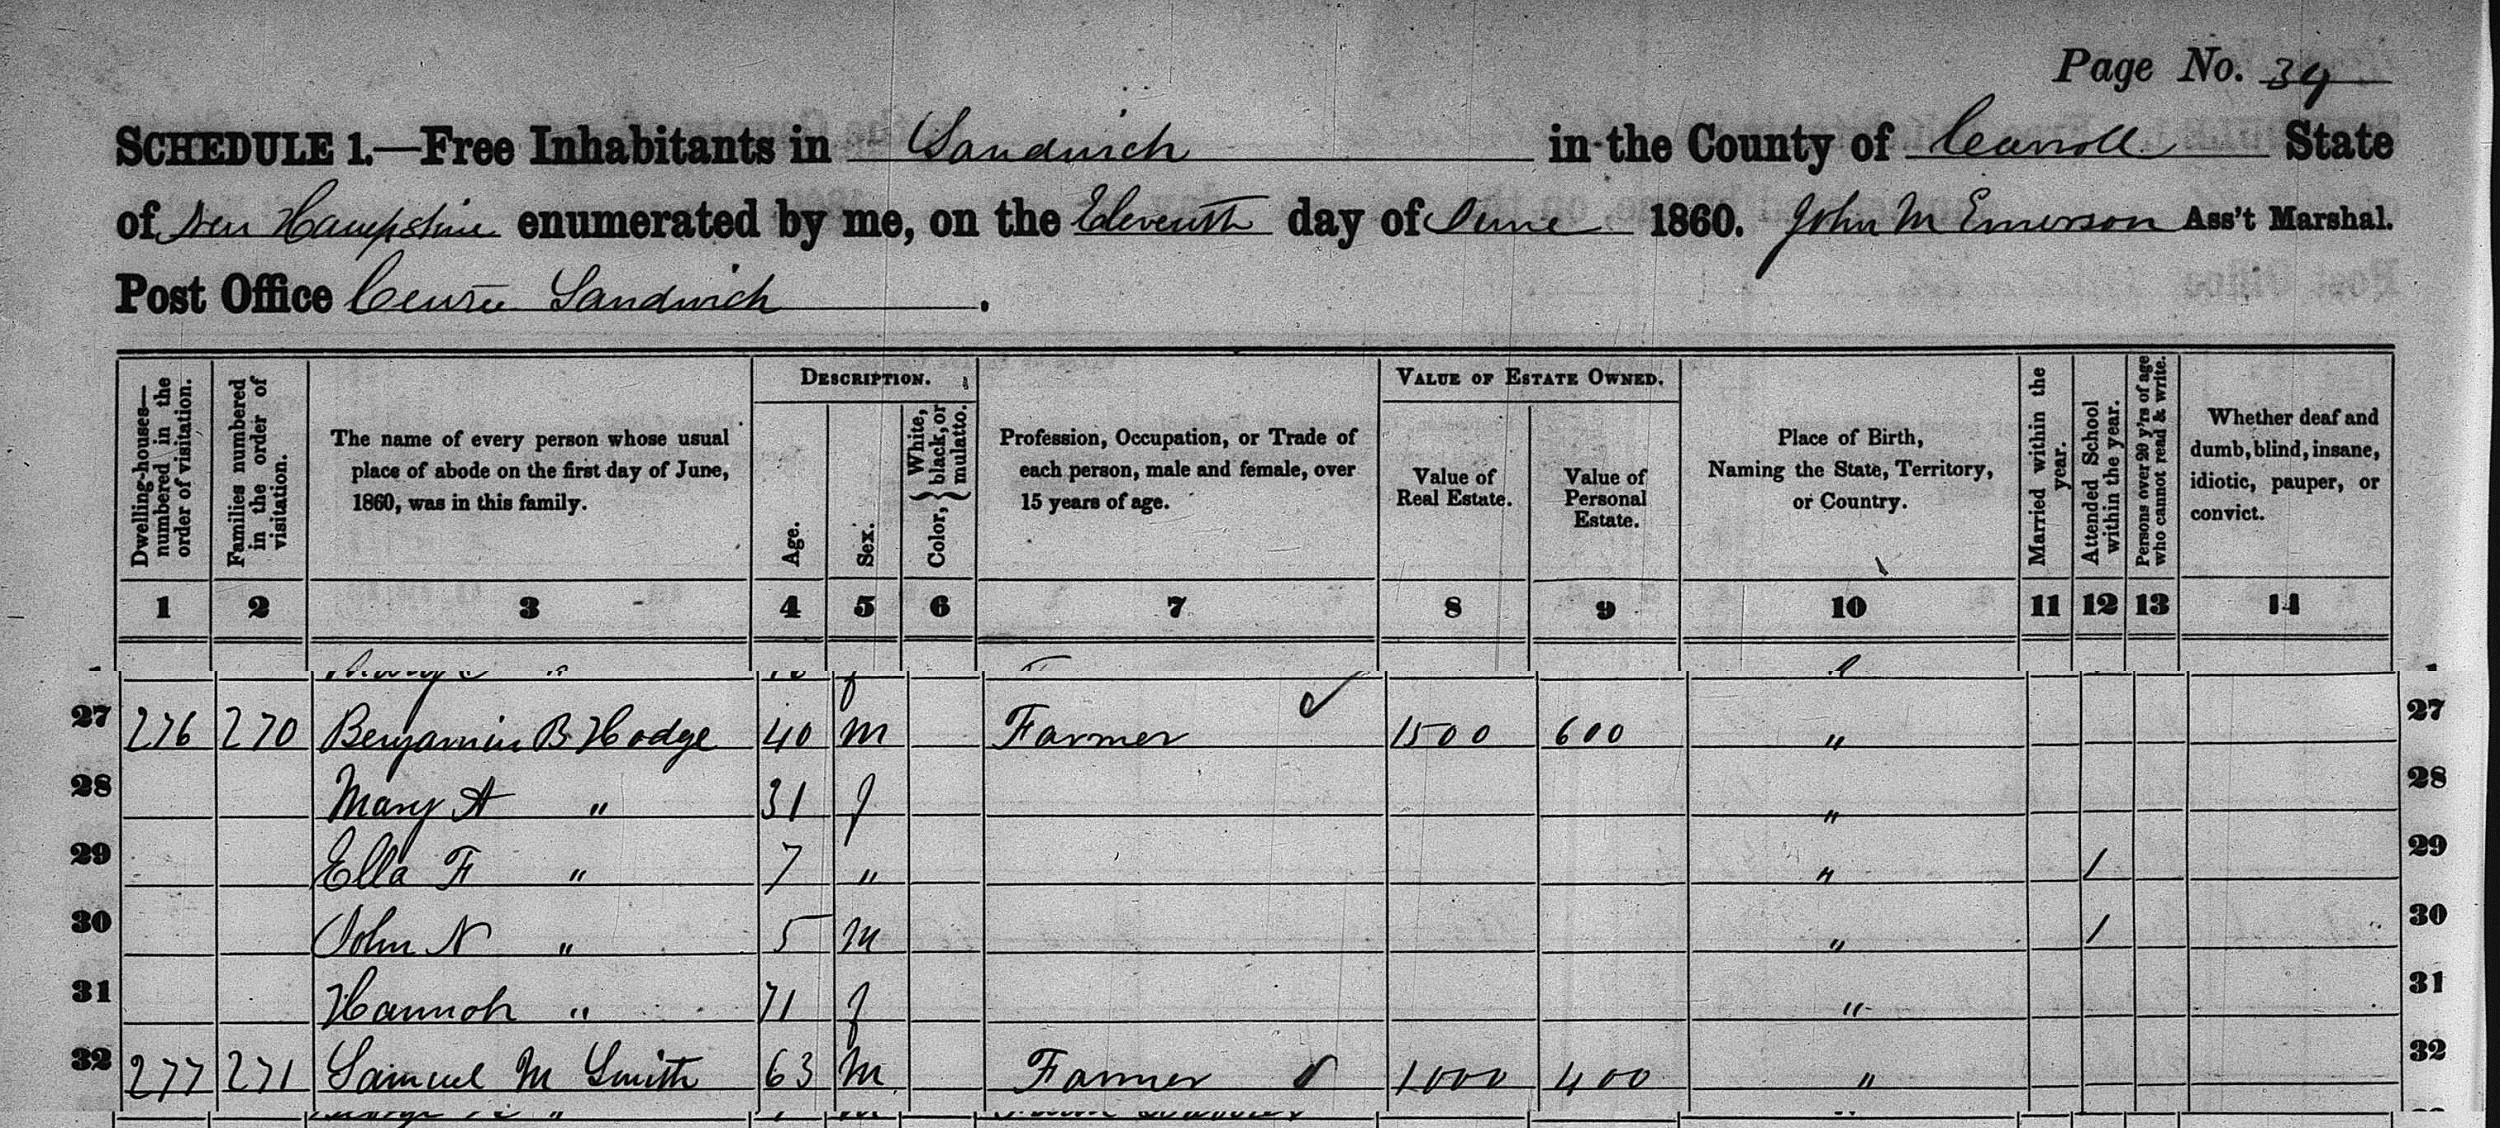 Page No. 34
SCHEDULE 1.—Free Inhabitants in Sandwich in the County of Carroll State
of New Hampshire enumerated by me, on the Eleventh day of June 1860. John M Emerson Ass't Marshal.
Post Office Centre Sandwich.
DESCRIPTION. VALUE OF ESTATE OWNED.
Dwelling-houses—
numbered in the
order of visitation.
Families numbered
in the order of
visitation.
The name of every person whose usual
place of abode on the first day of June,
1860, was in this family.
Age.
Sex.
Color, { White, black, or mulatto. }
Profession, Occupation, or Trade of
each person, male and female, over
15 years of age.
Value of
Real Estate.
Value of
Personal
Estate.
Place of Birth,
Naming the State, Territory,
or Country.
Married within the
year.
Attended School
within the year.
Persons over 20 y'rs of age
who cannot read & write.
Whether deaf and
dumb, blind, insane,
idiotic, pauper, or
convict.
1 2 3 4 5 6 7 8 9 10 11 12 13 14
27 276 270 Benjamin B Hodge 40 M Farmer 1500 600 " 27
28 Mary A " 31 f " 28
29 Ella F " 7 " " / 29
30 John N " 5 M " / 30
31 Hannah " 71 f " 31
32 277 271 Samuel M Smith 63 M Farmer 1000 400 " 32